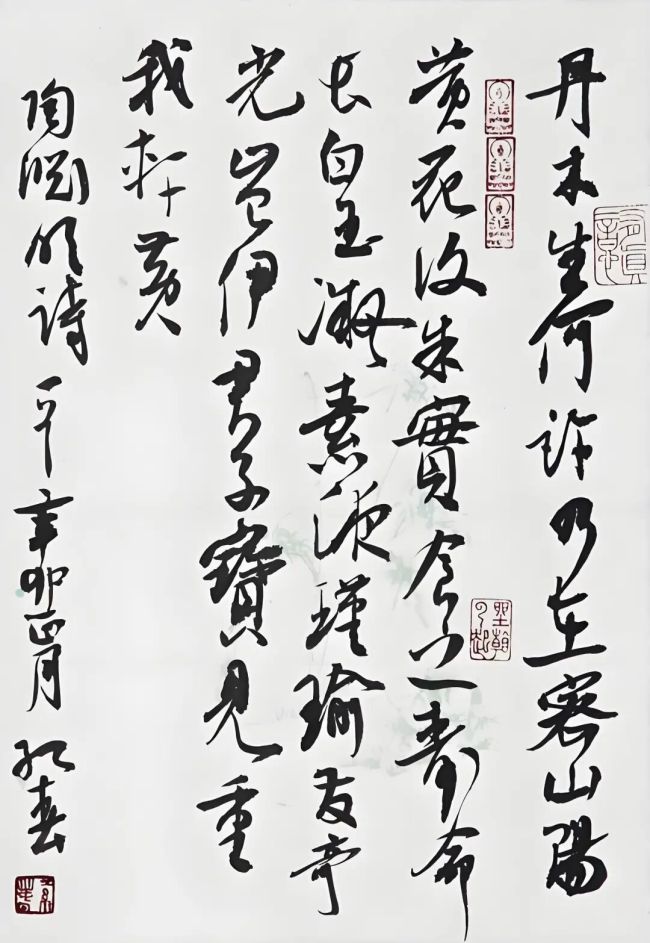 丹木生何許乃在密山陽
黄花復朱實食之壽命
長白玉凝素液瑾瑜發奇
光豈伊君子寶見重
我軒黄
陶淵明詩一 辛卯正月 春